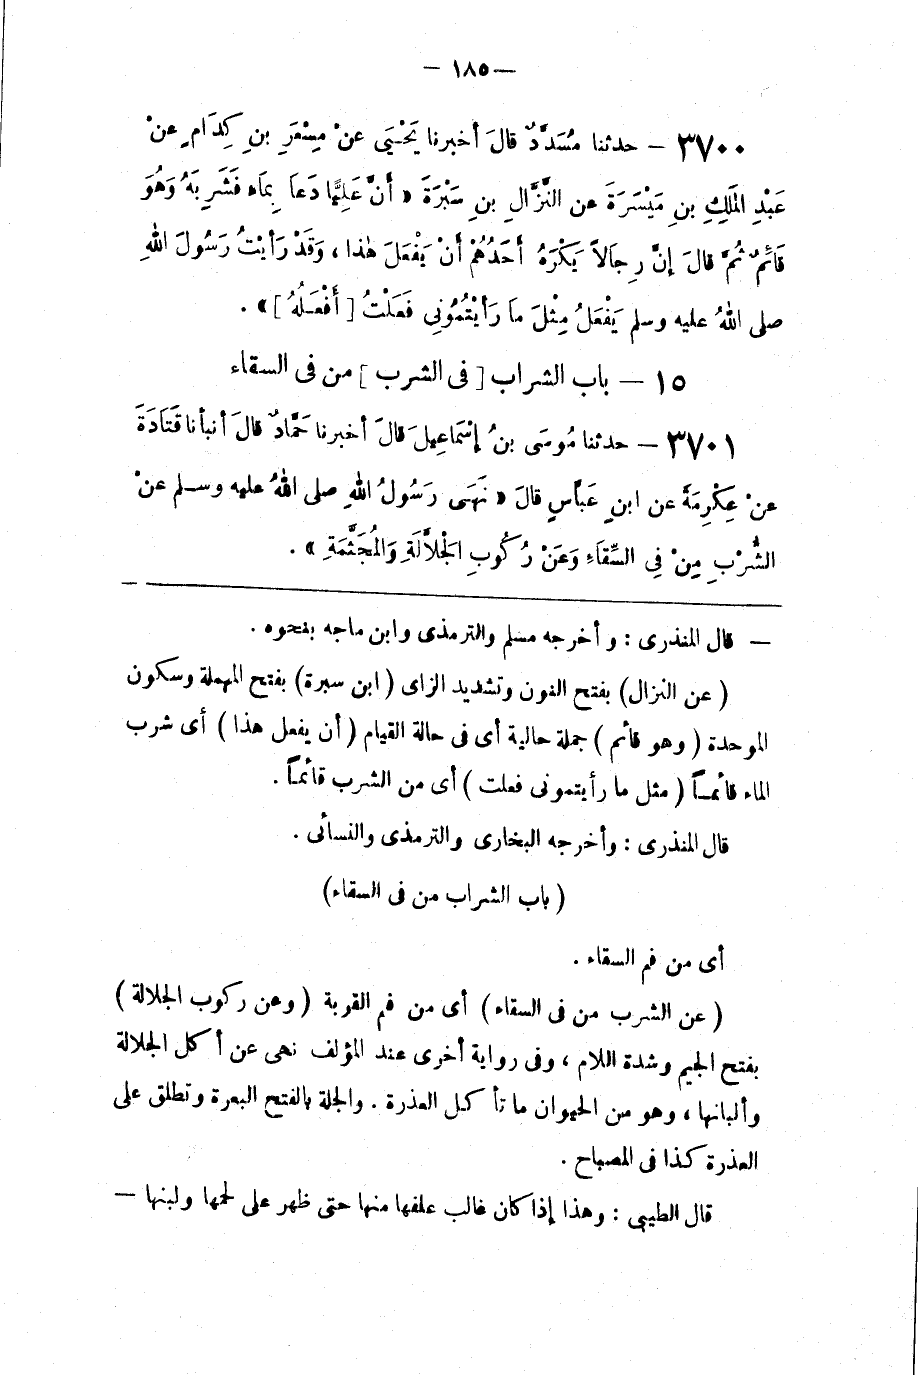 — ١٨٥ —
٣٧٠٠ — حدثنا مُسَدَّدٌ قالَ أخبرنا يَحْيَى عنْ مِسْعَرِ بنِ كِدَامٍ عنْ
عَبْدِ المَلِكِ بنِ مَيْسَرَةَ عن النَّزَّالِ بنِ سَبْرَةَ « أَنَّ عَلِيًّا دَعَا بِمَاء فَشَرِبَهُ وَهُوَ
قَائِمٌ ثُمَّ قالَ إنَّ رِجَالاً يَكْرَهُ أَحَدُهُمْ أَنْ يَفْعَلَ هٰذا ، وَقَدْ رَأَيْتُ رَسُولَ اللهِ
صلى اللهُ عليه وسلم يَفْعَلُ مِثْلَ ما رَأَيْتُمُونِى فَعَلْتُ [ أَفْعَلُهُ ] » .
١٥ — باب الشراب [ فى الشرب ] من فى السقاء
٣٧٠١ — حدثنا مُوسَى بنُ إسْمَاعِيلَ قالَ أخبرنا حَمَّادٌ قالَ أنبأنا قَتَادَةَ
عنْ عِكْرِمَةَ عن ابنِ عَبَّاسٍ قالَ « نَهَى رَسُولُ اللهِ صلى اللهُ عليه وسلم عنْ
الشُّرْبِ مِنْ فِى السِّقَاءِ وَعَنْ رُكُوبِ الْجَلاَّلَةِ وَالْمُجَثَّمَةِ » .
— قال المنذرى : وأخرجه مسلم والترمذى وابن ماجه بنحوه .
( عن النزال ) بفتح النون وتشديد الزاى ( ابن سبرة ) بفتح المهملة وسكون
الموحدة ( وهو قائم ) جملة حالية أى فى حالة القيام ( أن يفعل هذا ) أى شرب
الماء قائمـاً ( مثل ما رأيتمونى فعلت ) أى من الشرب قائمـاً .
قال المنذرى : وأخرجه البخارى والترمذى والنسائى .
( باب الشراب من فى السقاء )
أى من فم السقاء .
( عن الشرب من فى السقاء ) أى من فم القربة ( وعن ركوب الجلالة )
بفتح الجيم وشدة اللام ، وفى رواية أخرى عند المؤلف نهى عن أكل الجلالة
وألبانها ، وهو من الحيوان ما تأكل العذرة . والجلة بالفتح البعرة وتطلق على
العذرة كذا فى المصباح .
قال الطيبى : وهذا إذا كان غالب علفها منها حتى ظهر على لحمها ولبنها —